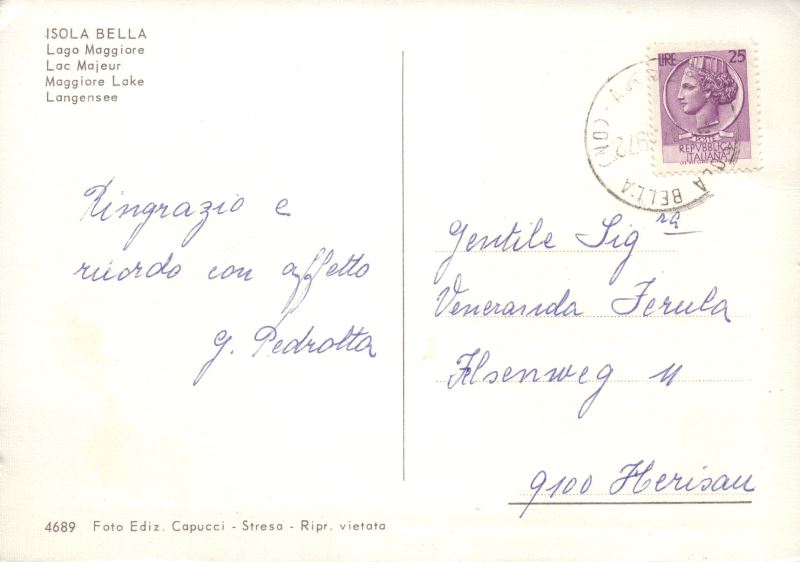 ISOLA BELLA
Lago Maggiore
Lac Majeur
Maggiore Lake
Langensee
Ringrazio e
ricordo con affetto
G. Pedrotta
LIRE 25
POSTE
REPVBBLICA
ITALIANA
ISOLA BELLA
1972
Gentile Sig.ra
Veneranda Ferula
Ilsenweg 11
9100 Herisau
4689 Foto Ediz. Capucci - Stresa - Ripr. vietata